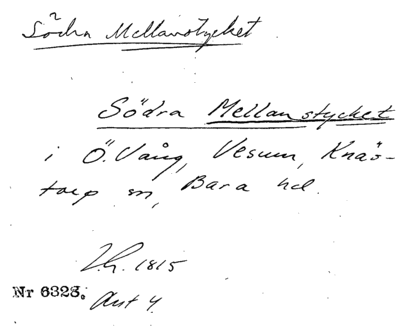 Södra Mellanstycket
Södra Mellanstycket
i Ö. Vång, Vesum, Knäs-
torp sn, Bara hd.
Lh. 1815
Nr 6323.
Akt 4.